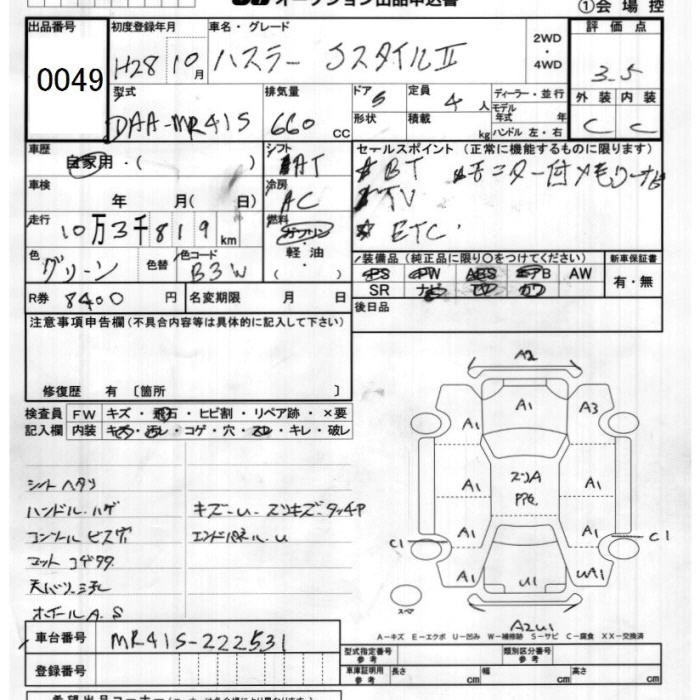 オークション出品申込書
①会場控
出品番号 初度登録年月 車名・グレード 2WD ・ 4WD 評価点
0049 H28 10月 ハスラー JスタイルⅡ 3.5
型式 排気量 ドア 5 定員 4人 ディーラー・並行 外装 内装
DAA-MR41S 660 cc 形状 積載 kg モデル年式 年 ハンドル 左・右 C C
車歴 シフト セールスポイント (正常に機能するものに限ります)
自家用・( ) AT BT モニター付メモリーナビ
車検 年 月( 日) 冷房 AC TV
走行 10万3千819km 燃料 ガソリン ETC
軽・油
色 グリーン 色替 色コード B3W ( )
装備品 (純正品に限り○をつけてください) 新車保証書
PS PW ABS エアB AW 有・無
SR ナビ
R券 8400円 名変期限 月 日 後日品
注意事項申告欄(不具合内容等は具体的に記入して下さい)
修復歴 有〔箇所 〕
検査員 FW キズ・飛石・ヒビ割・リペア跡・×要
記入欄 内装 キズ・汚レ・コゲ・穴・スレ・キレ・破レ
シートヘタリ
ハンドル.ハゲ キズ-U-スリキズ-タッチP
コンソール ビス穴 エンドパネル.U
マットコゲ
ホイールA.S
A2
A1 A1 A3
A1 スリA A1
C1 A1 A1 C1
A1 U1 WA1
スペア
A2U1
A-キズ E-エクボ U-凹み W-補修跡 S-サビ C-腐食 XX-交換済
車台番号 MR41S-222531
登録番号
型式指定番号 参考 類別区分番号 参考
車庫証明用 参考 長さ cm 幅 cm 高さ cm
希望出品コーナー